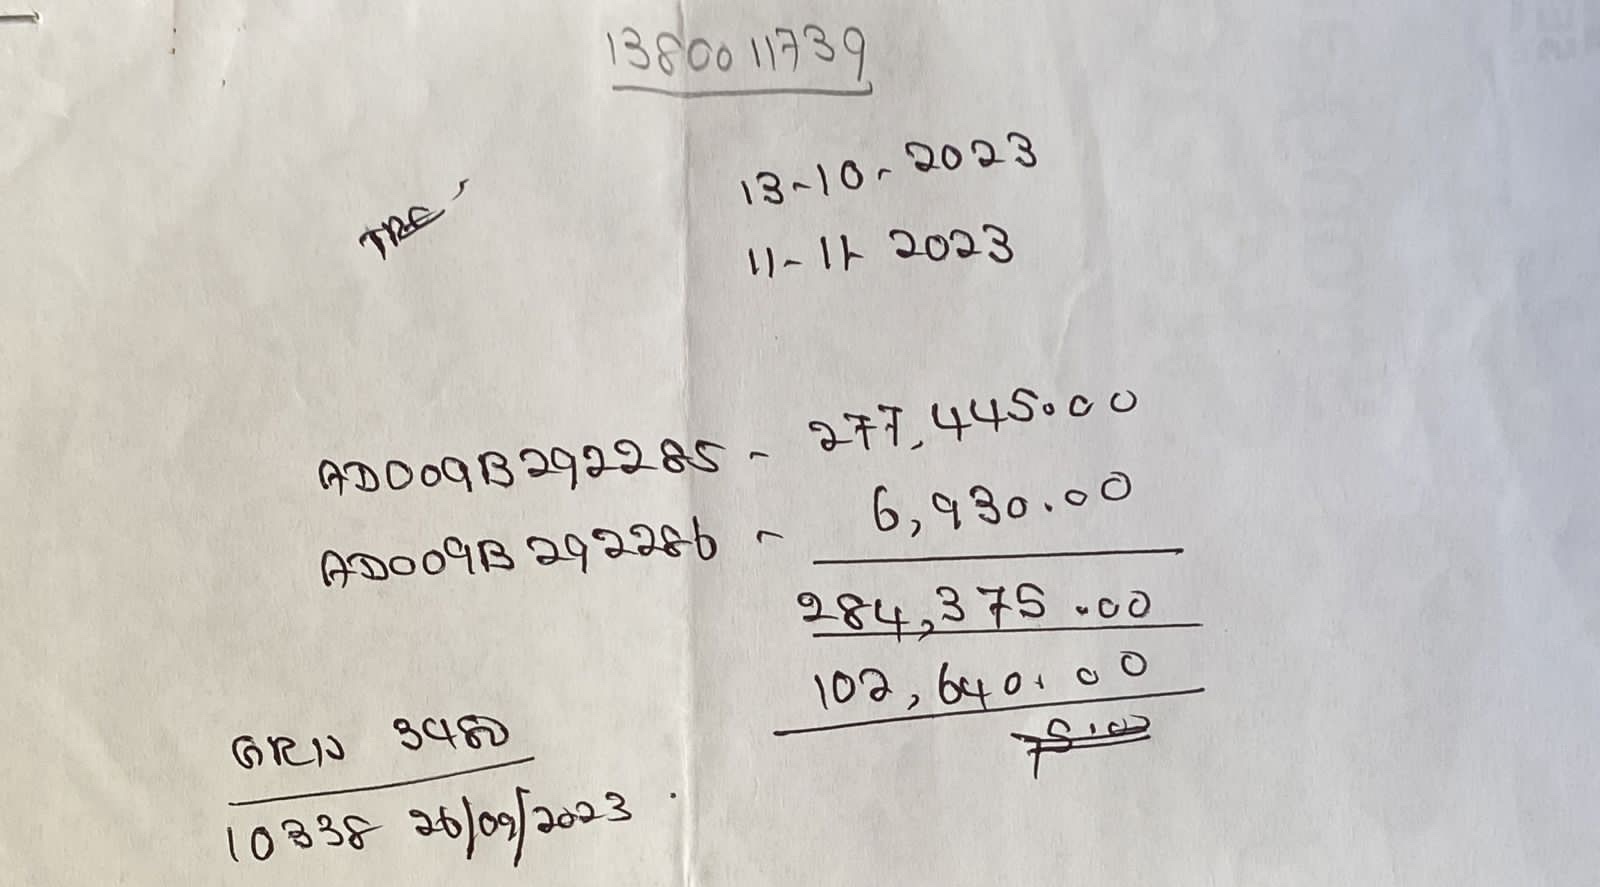 1380011739
13-10-2023
11-11-2023
AD009B292285 - 277,445.00
AD009B292286 - 6,930.00
284,375.00
102,640.00
GRN 3480
10338 26/09/2023